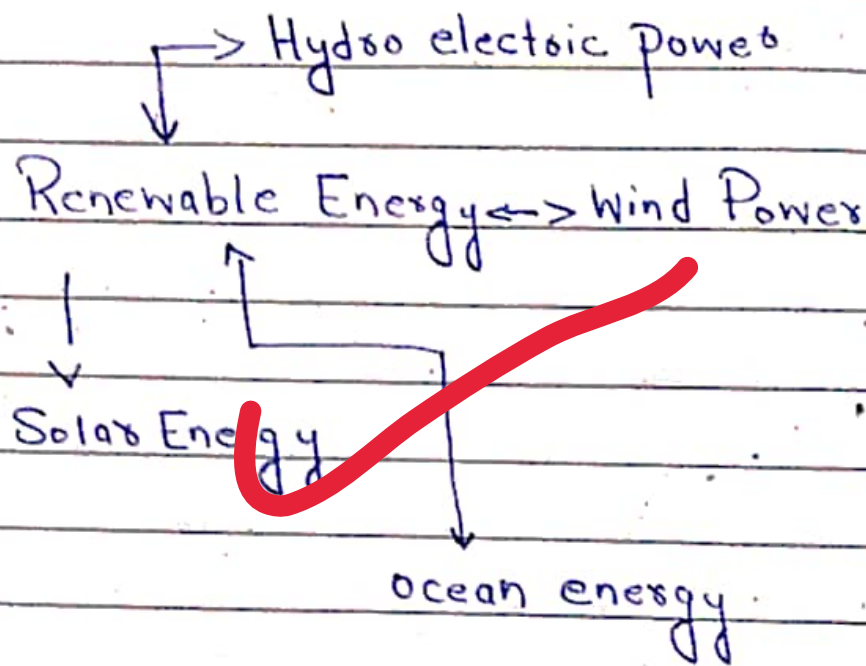 Hydro electric Power
Renewable Energy <-> Wind Power
Solar Energy
ocean energy.